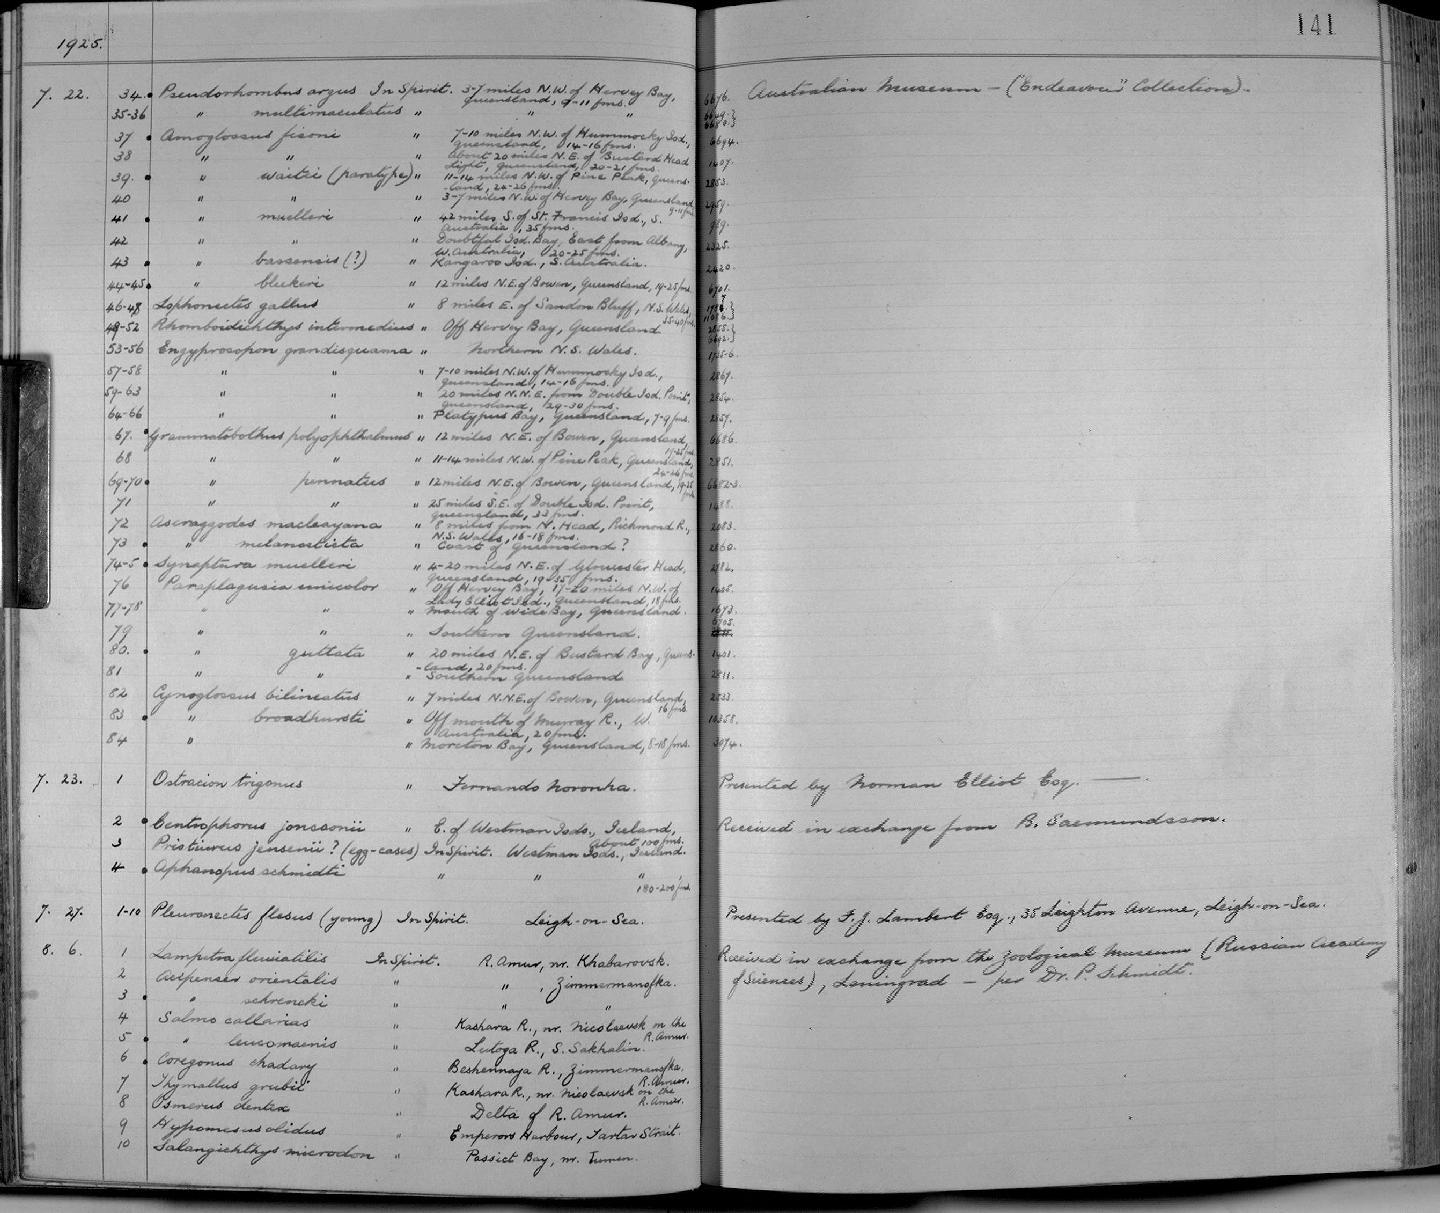 1925.
141
7. 22. 34. Pseudorhombus argus In Spirit. 3-7 miles N.W. of Hervey Bay, 6676. Australian Museum — ("Endeavour" Collection).
Queensland, 9-11 fms.
35-36 " multimaculatus " " "
37 Arnoglossus fisoni " 7-10 miles N.W. of Hummocky Isd., 6694.
Queensland, 14-16 fms.
38 " " " About 20 miles N.E. of Bustard Head 1407.
Light, Queensland, 20-21 fms.
39. " waitei (paratype) " 11-14 miles N.W. of Pine Peak, Queens- 2853.
-land, 24-26 fms.
40 " " " 3-7 miles N.W. of Hervey Bay, Queensland 2959.
9-11 fms.
41 " muelleri " 42 miles S. of St. Francis Isd., S. 989.
Australia, 35 fms.
42 " " " Doubtful Isd. Bay, East from Albany, 2325.
W. Australia, 20-25 fms.
43 " bassensis (?) " Kangaroo Isd., S. Australia. 2420.
44-45 " bleekeri " 12 miles N.E. of Bowen, Queensland, 19-25 fms. 6701.
46-48 Lophonectes gallus " 8 miles E. of Sandon Bluff, N.S. Wales,
35-40 fms.
49-52 Rhomboidichthys intermedius " Off Hervey Bay, Queensland 2855.
53-56 Engyprosopon grandisquama " Northern N.S. Wales. 1755-6
57-58 " " " 7-10 miles N.W. of Hummocky Isd., 2867.
Queensland, 14-16 fms.
59-63 " " " 20 miles N.N.E. from Double Isd. Point, 2854.
Queensland, 29-30 fms.
64-66 " " " Platypus Bay, Queensland, 7-9 fms. 2857.
67. Grammatobothus polyophthalmus " 12 miles N.E. of Bowen, Queensland, 6686.
19-25 fms.
68 " " " 11-14 miles N.W. of Pine Peak, Queensland, 2851.
24-26 fms.
69-70 " pennatus " 12 miles N.E. of Bowen, Queensland, 19-25 fms. 6682-3.
71 " " " 25 miles S.E. of Double Isd. Point, 1488.
Queensland, 33 fms.
72 Aseraggodes macleayana " 8 miles from N. Head, Richmond R., 2083.
N.S. Wales, 16-18 fms.
73 " melanosticta " Coast of Queensland? 2860.
74-5 Synaptura muelleri " 4-20 miles N.E. of Gloucester Head, 2882.
Queensland, 19-35 fms.
76 Paraplagusia unicolor " Off Hervey Bay, 17-20 miles N.W. of
Lady Elliot Isd., Queensland, 18 fms.
77-78 " " " Mouth of Wide Bay, Queensland. 1673.
79 " " " Southern Queensland. 6705.
80. " guttata " 20 miles N.E. of Bustard Bay, Queens- 1401.
-land, 20 fms.
81 " " " Southern Queensland 2811.
82 Cynoglossus bilineatus " 7 miles N.N.E. of Bowen, Queensland, 2833.
16 fms.
83 " broadhursti " Off mouth of Murray R., W. 10358.
Australia, 20 fms.
84 " " Moreton Bay, Queensland, 8-18 fms. 3074.
7. 23. 1 Ostracion trigonus " Fernando Noronha. Presented by Norman Elliot Esq. —
2 Centrophorus jonssonii " E. of Westman Isds., Iceland, Received in exchange from B. Saemundsson.
About 100 fms.
3 Pristiurus jensenii? (egg-cases) In Spirit. Westman Isds., Iceland.
4 Aphanopus schmidti " " "
180-200 fms
7. 27. 1-10 Pleuronectes flesus (young) In Spirit. Leigh-on-Sea. Presented by F.J. Lambert Esq., 38 Leighton Avenue, Leigh-on-Sea.
8. 6. 1 Lampetra fluviatilis In Spirit. R. Amur, nr. Khabarovsk. Received in exchange from the Zoological Museum (Russian Academy
2 Acipenser orientalis " " , Zimmermanofka. of Sciences), Leningrad — per Dr. P. Schmidt.
3 " schrencki " " "
4 Salmo callarias " Kashara R., nr. Nicolaevsk on the
R. Amur.
5 " leucomaenis " Lutoga R., S. Sakhalin.
6 Coregonus chadary Beshennaya R., Zimmermanofka,
R. Amur.
7 Thymallus grubii " Kashara R., nr. Nicolaevsk on the
R. Amur.
8 Osmerus dentex " Delta of R. Amur.
9 Hypomesus olidus " Emperors Harbour, Tartar Strait.
10 Salangichthys microdon " Possiet Bay, nr. Tumen.